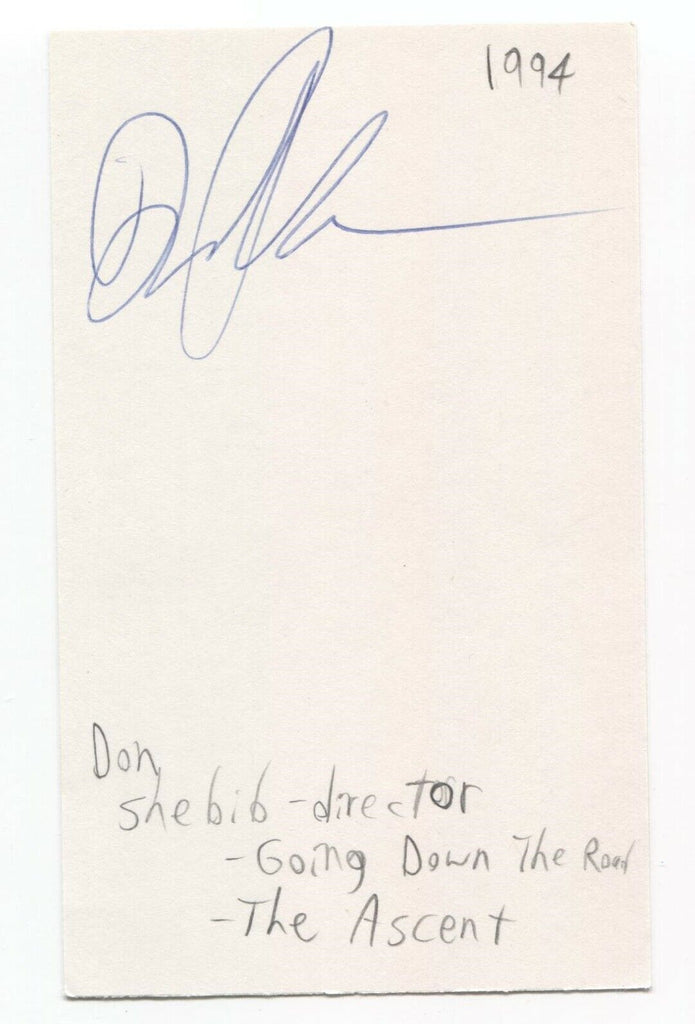 1994
Don
Shebib - director
- Going Down The Road
- The Ascent